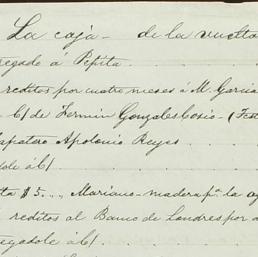 La caja - de la vuelta
regado á Pepita
reditos por cuatro meses á M. Garcia
b/ de Fermin Gonzalez Cosio - (Fest
Zapatero Apolonio Reyes
dole á b/
ta $5.., Mariano - madera pa. la
reditos al Banco de Londres por
regadole á b/